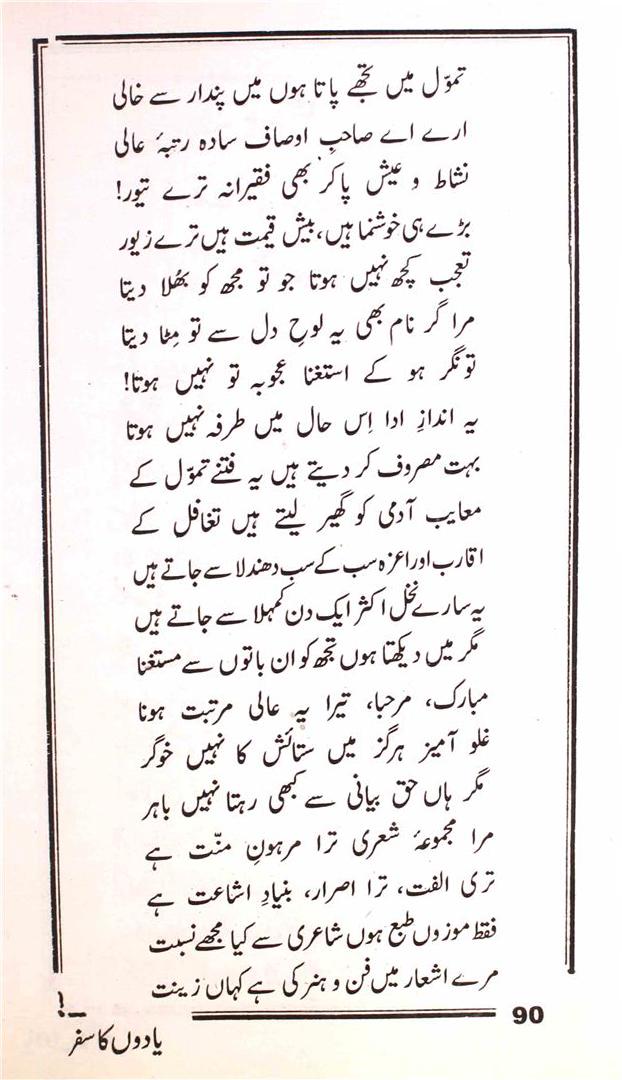 تموّل میں تجھے پاتا ہوں میں پندار سے خالی
ارے اے صاحبِ اوصاف سادہ رتبۂ عالی
نشاط و عیش پاکر بھی فقیرانہ ترے تیور!
بڑے ہی خوشنما ہیں، بیش قیمت ہیں ترے زیور
تعجب کچھ نہیں ہوتا جو تو مجھ کو بھُلا دیتا
مرا گر نام بھی یہ لوحِ دل سے تو مِٹا دیتا
تونگر ہو کے استغنا عجوبہ تو نہیں ہوتا!
یہ اندازِ ادا اِس حال میں طرفہ نہیں ہوتا
بہت مصروف کر دیتے ہیں یہ فتنے تموّل کے
معایب آدمی کو گھیر لیتے ہیں تغافل کے
اقارب اور اعزہ سب کے سب دھندلا سے جاتے ہیں
یہ سارے نخل اکثر ایک دن کمہلا سے جاتے ہیں
مگر میں دیکھتا ہوں تجھ کو ان باتوں سے مستغنا
مبارک، مرحبا، تیرا یہ عالی مرتبت ہونا
غلو آمیز ہرگز میں ستائش کا نہیں خوگر
مگر ہاں حق بیانی سے کبھی رہتا نہیں باہر
مرا مجموعۂ شعری ترا مرہونِ منّت ہے
تری الفت، ترا اصرار، بنیادِ اشاعت ہے
فقط موزوں طبع ہوں شاعری سے کیا مجھے نسبت
مرے اشعار میں فن و ہنر کی ہے کہاں زینت
90
یادوں کا سفر